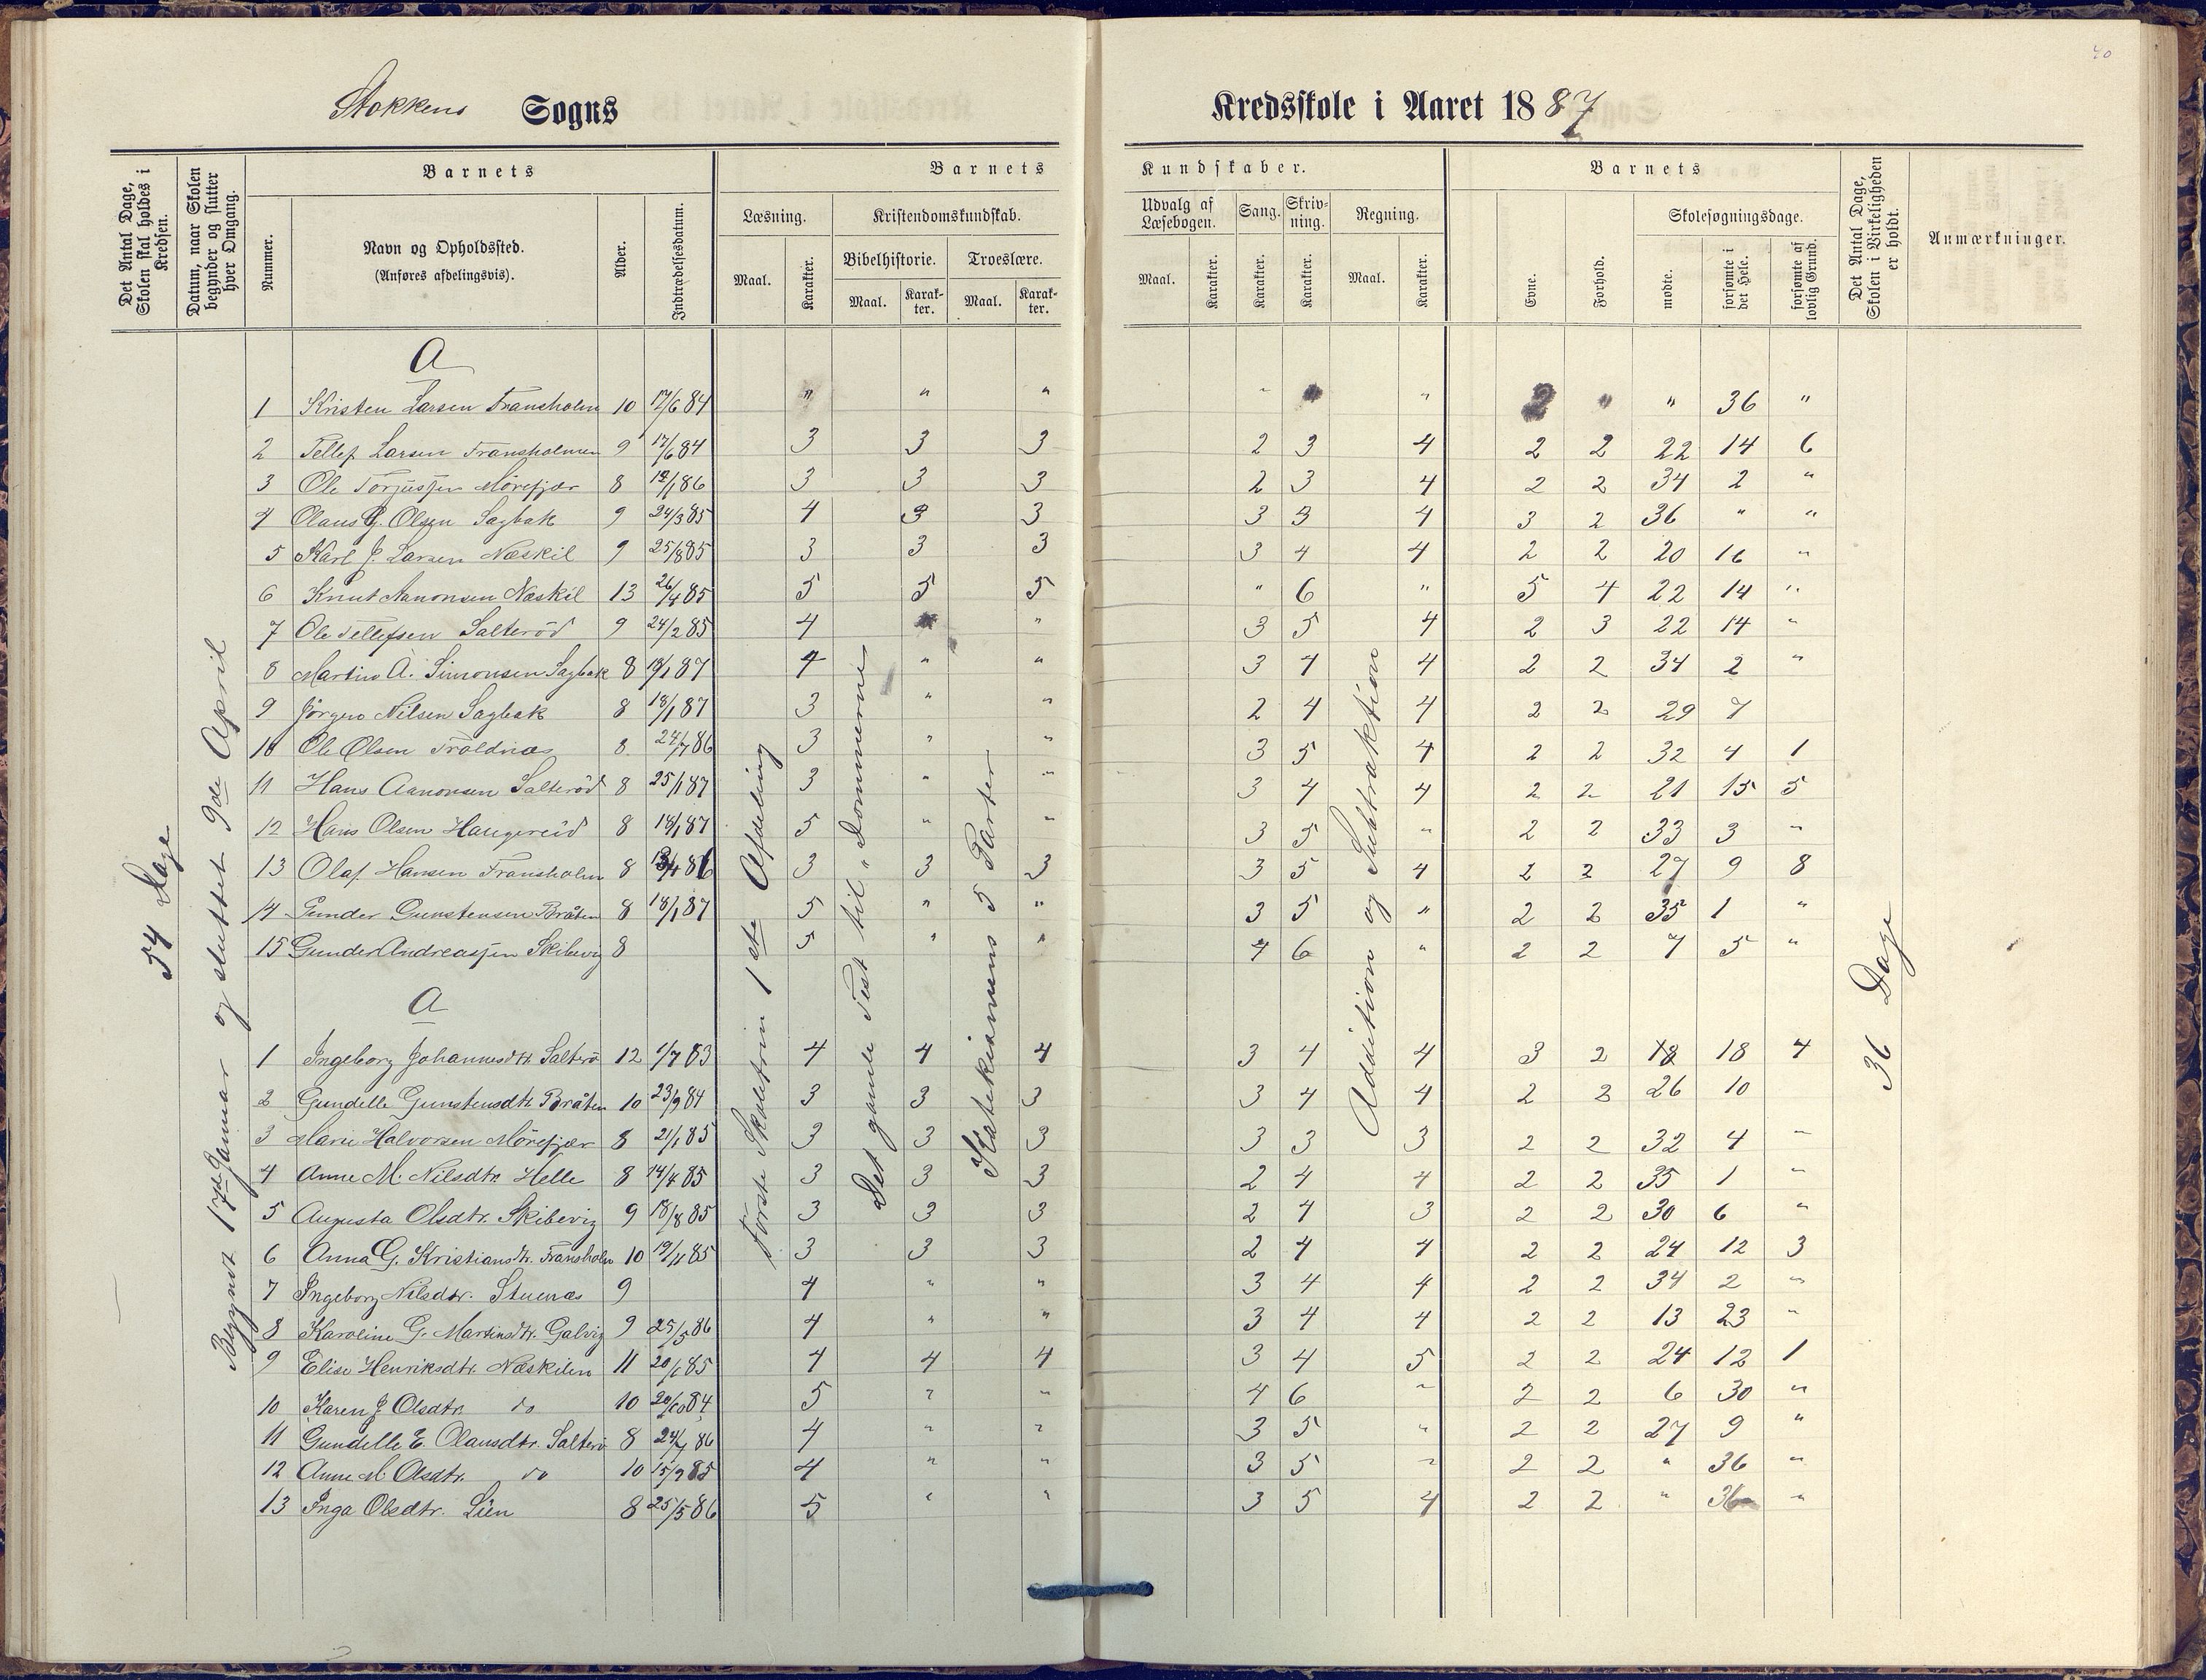 40
Stokkens Sogns Kredsskole i Aaret 1887
Det Antal Dage, Skolen skal holdes i Kredsen.
Datum, naar Skolen begynder og slutter hver Omgang.
Barnets
Nummer.
Navn og Opholdssted.
(Anføres afdelingsvis).
Alder.
Indtrædelsesdatum.
Barnets Kundskaber.
Læsning.
Maal.
Karakter.
Kristendomskundskab.
Bibelhistorie.
Maal.
Karakter.
Troeslære.
Maal.
Karakter.
Udvalg af Læsebogen.
Maal.
Karakter.
Sang.
Karakter.
Skrivning.
Karakter.
Regning.
Maal.
Karakter.
Barnets
Evne.
Forhold.
Skolesøgningsdage.
mødte.
forsømte i det Hele.
forsømte af lovlig Grund.
Det Antal Dage, Skolen i Virkeligheden er holdt.
Anmærkninger.
54 Dage
Begyndt 17de Januar og sluttet 9de April
Første Skoletrin 1ste Afdeling
Det gamle Test til „Dommerne
Katekismens 5 Parter
Addition og Subtraktion
36 Dage
A
1 Kristen Larsen Fransholm 10 17/6 84 " " " " " " " " 36 "
2 Tellef Larsen Fransholmen 9 17/6 84 3 3 3 2 3 4 2 2 22 14 6
3 Ole Torjussen Mørefjær 8 12/1 86 3 3 3 2 3 4 2 2 34 2 "
4 Olaus G. Olsen Sagbak 9 24/3 85 4 3 3 3 3 4 3 2 36 " "
5 Karl J. Larsen Næskil 9 25/8 85 3 3 3 3 4 4 2 2 20 16 "
6 Knut Aanonsen Næskil 13 26/4 85 5 5 5 " 6 " 5 4 22 14 "
7 Ole Tellefsen Salterød 9 24/2 85 4 " 3 5 4 2 3 22 14 "
8 Martin A. Simonsen Sagbak 8 18/1 87 4 " " 3 4 4 2 2 34 2 "
9 Jørgen Nilsen Sagbak 8 18/1 87 3 " " 2 4 4 2 2 29 7
10 Ole Olsen Troldnæs 8 24/7 86 3 " " 3 5 4 2 2 32 4 1
11 Hans Aanonsen Salterød 8 25/1 87 3 " " 3 4 4 2 2 21 15 5
12 Hans Olsen Haugereid 8 18/1 87 5 " " 3 5 " 2 2 33 3 "
13 Olaf Hansen Fransholm 8 86 3 3 3 3 5 4 2 2 27 9 8
14 Gunder Gunstensen Bråten 8 18/1 87 5 " " 3 5 " 2 2 35 1 "
15 Gunder Andreassen Skibevig 8 5 " " 4 6 " 2 2 7 5 "
A
1 Ingeborg Johannesdtr. Salterø 12 1/7 83 4 4 4 3 4 4 3 2 18 18 4
2 Gundelle Gunstensdtr. Bråten 10 23/9 84 3 3 3 3 4 4 2 2 26 10
3 Marie Halvorsen Mørefjær 8 21/1 85 3 3 3 3 3 3 2 2 32 4 "
4 Anne M. Nilsdtr. Helle 8 14/4 85 3 3 3 2 4 4 2 2 35 1 "
5 Augusta Olsdtr. Skibevig 9 18/8 85 3 3 3 2 4 3 2 2 30 6 "
6 Anna G. Kristiansdtr. Fransholm 10 19/11 85 3 3 3 2 4 4 2 2 24 12 3
7 Ingeborg Nilsdtr. Stuenæs 9 4 " " 3 4 4 2 2 34 2 "
8 Karoline G. Martinsdtr. Galvig 9 25/5 86 4 " " 3 4 4 2 2 13 23 "
9 Elise Henriksdtr. Næskilen 11 20/1 85 4 4 4 3 4 5 2 2 24 12 1
10 Karen J Olsdtr. do 10 20/10 84 5 " " 4 6 " 2 2 6 30 "
11 Gundelle E. Olausdtr. Salterø 8 24/7 86 4 " " 3 5 " 2 2 27 9 "
12 Anne M Olsdtr. do 10 15/9 85 4 " " 3 5 " 2 2 " 36 "
13 Inga Olsdtr. Lien 8 25/5 86 5 " " 3 5 4 2 2 " 36 "